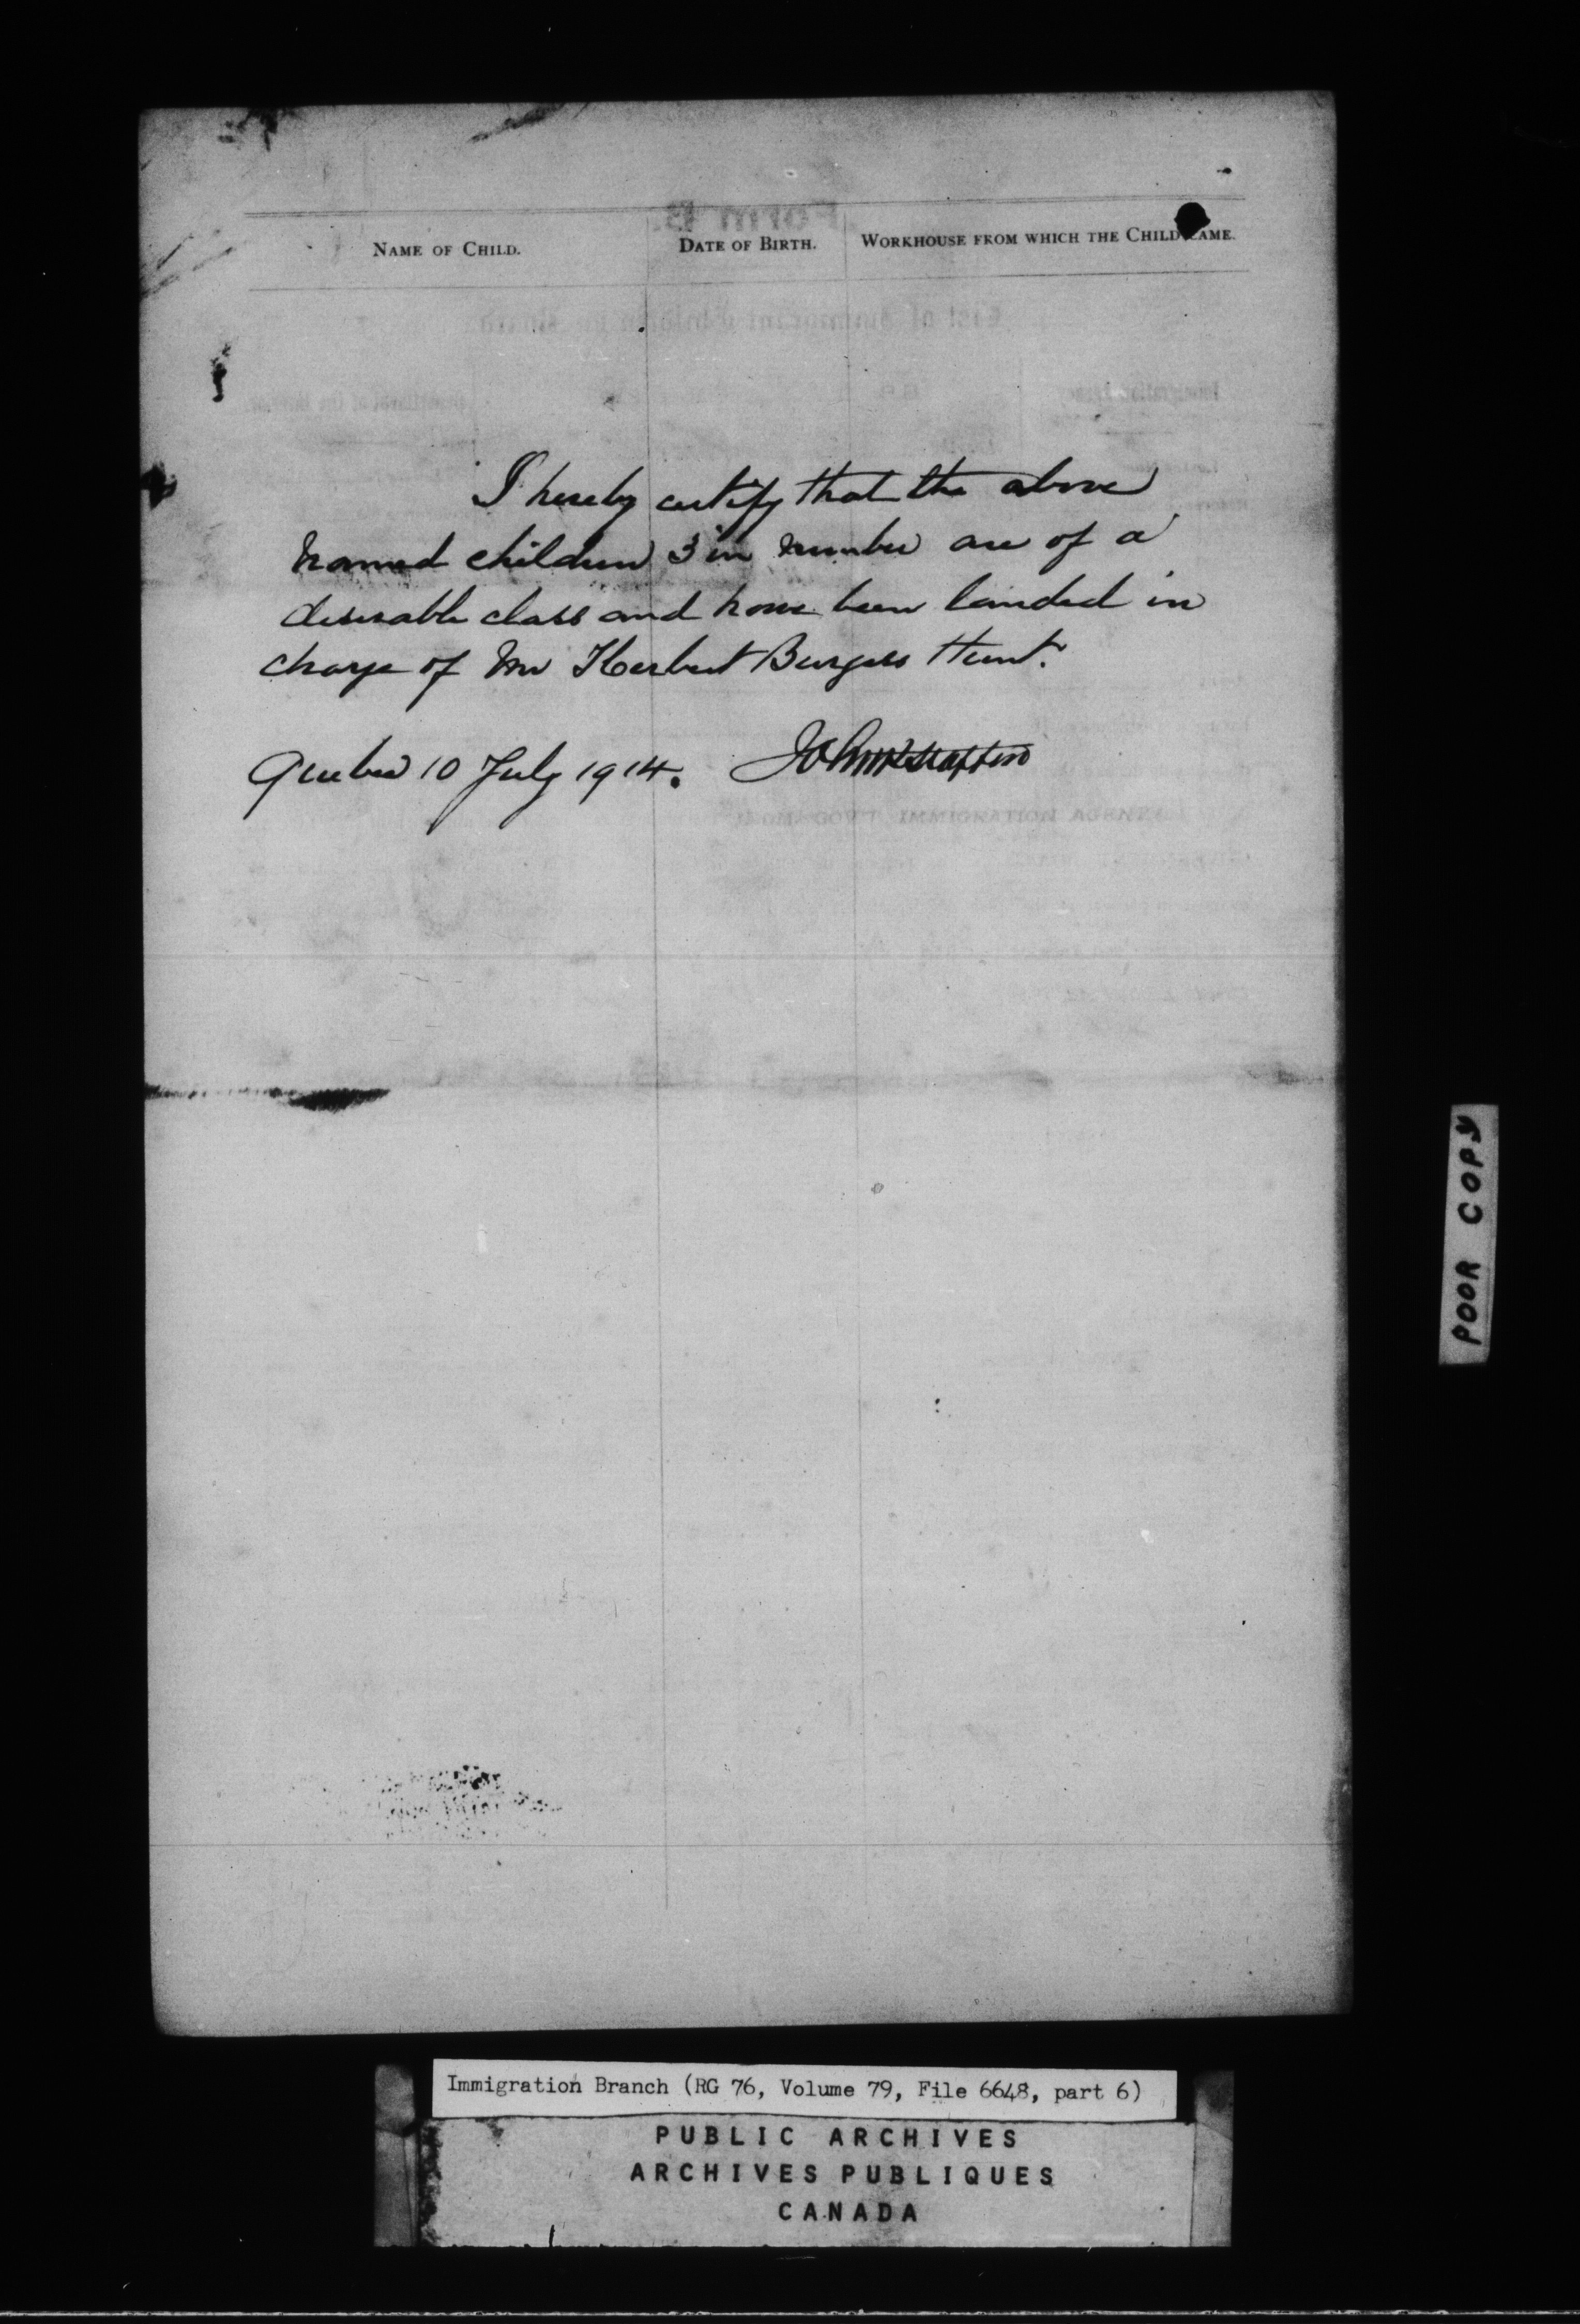 NAME OF CHILD. DATE OF BIRTH. WORKHOUSE FROM WHICH THE CHILD CAME.
I hereby certify that the above
named children 3 in number are of a
desirable class and have been landed in
charge of Mr Herbert Burgess Hunt.
Quebec 10 July 1914.
POOR COPY
Immigration Branch (RG 76, Volume 79, File 6648, part 6)
PUBLIC ARCHIVES
ARCHIVES PUBLIQUES
CANADA